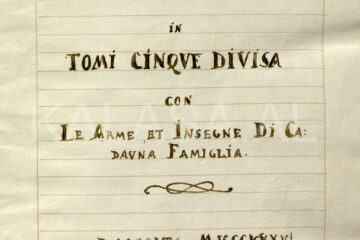 in
TOMI CINQVE DIVISA
CON
LE ARME ET INSEGNE DI CA:
DAVNA FAMIGLIA.